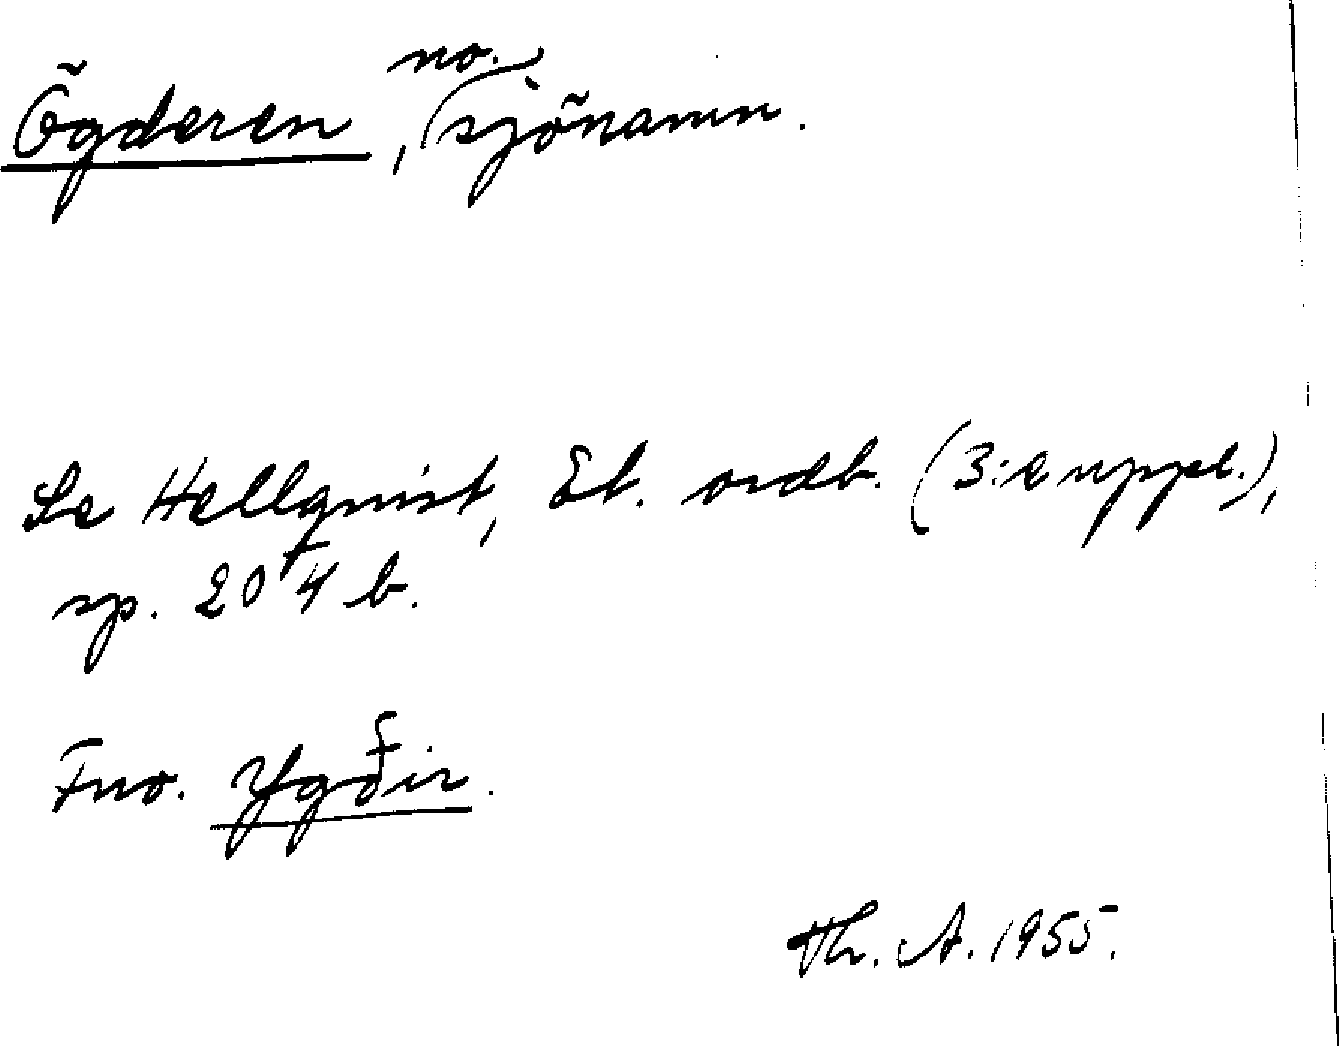 Ögderen, no. sjönamn.
Se Hellquist, Et. ordb. (3:e uppl.),
sp. 204 b.
Fno. Ygðir.
Th. A. 1955.